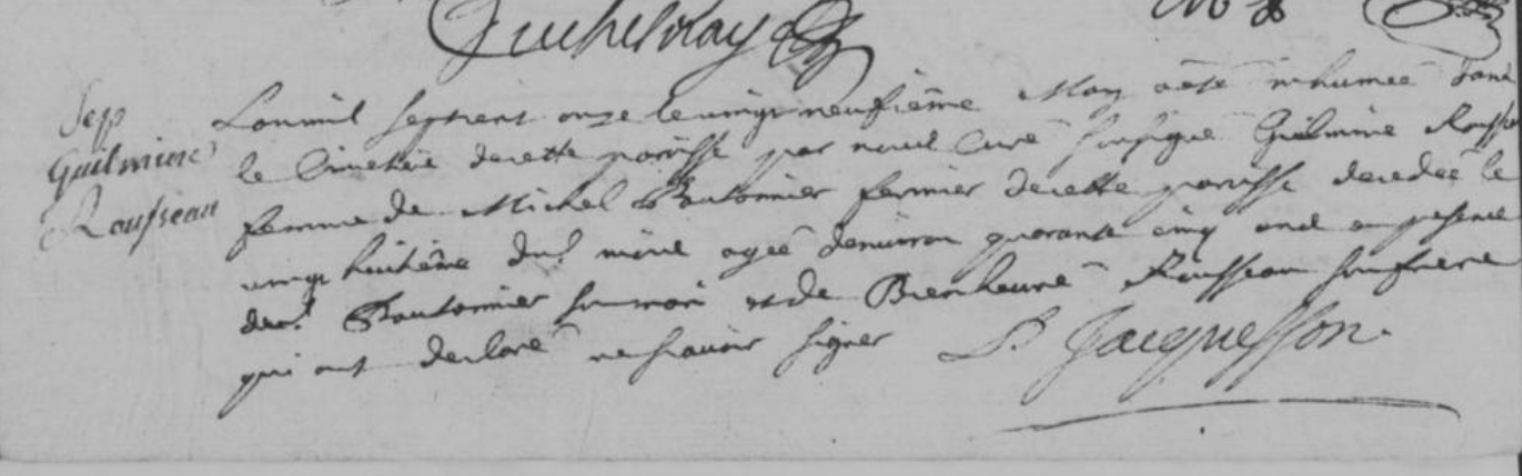 Sep
Guilmine
Rousseau
Lan mil sept cent onze le vingt neufième May a été inhumée dans
le Cimetière de cette paroisse par nous Curé soussigné Guilmine Rousse
femme de Michel Boutonnier fermier de cette paroisse decedée le
vingt huitième dud. mois agée denviron quarante cinq ans en presence
dud. Boutonnier son mari et de Bienheuré Rousseau son frere
qui ont declaré ne sçavoir signer P. Jacquesson